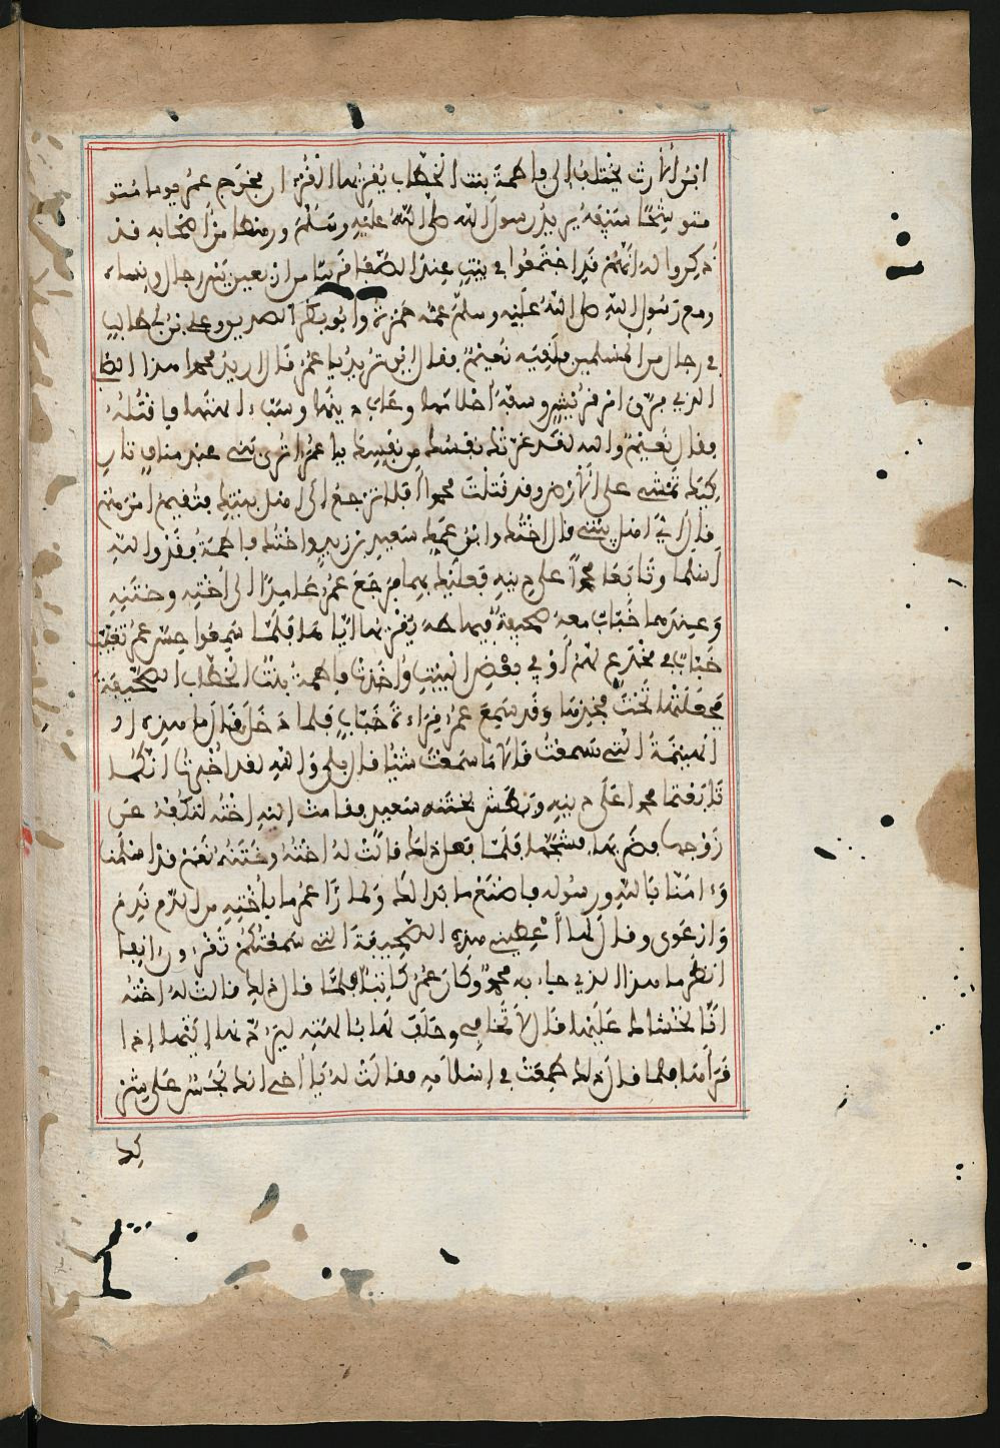 ابن الارث يختلف الى فاطمة بنت الخطاب يقرئها القرءان فخرج عمر يوما متو
متوشحا سيفه يريد رسول الله صلى الله عليه وسلم ورهطا من اصحابه قد
ذكروا له انهم قد اجتمعوا في بيت عند الصفا قريبا من اربعين بين رجال ونساء
ومع رسول الله صلى الله عليه وسلم عمه حمزة وابو بكر الصديق وعلي بن ابي طالب
في رجال من المسلمين فلقيه نعيم فقال اين تريد يا عمر قال اريد محمدا هذا الصا
الذي فرق امر قريش وسفه احلامها وعاب دينها وسب ءالهتها فاقتله
فقال نعيم والله لقد غرتك نفسك من نفسك يا عمر اترى بني عبد مناف تار
كيك تمشي على الارض وقد قتلت محمدا افلا ترجع الى اهل بيتك فتقيم امرهم
قال اي اهل بيتي قال اختك وابن عمك سعيد بن زيد واختك فاطمة فقد والله
اسلما وتابعا محمدا على دينه فعليك بهما فرجع عمر عامدا الى اخته وختنه
وعندهما خباب معه صحيفة فيها طه يقرئهما اياها فلما سمعوا حس عمر تغيب
خباب في مخدع لهم او في بعض البيت واخذت فاطمة بنت الخطاب الصحيفة
فجعلتها تحت فخذها وقد سمع عمر قراءة خباب فلما دخل قال ما هذه او
الهينمة التي سمعت قالا ما سمعت شيئا قال بلى والله لقد اخبرت انكما
تابعتما محمدا على دينه وبطش بختنه سعيد فقامت اليه اخته لتكفه عن
زوجها فضربها فشجها فلما فعل ذلك قالت له اخته وختنه نعم قد اسلمنا
وءامنا بالله ورسوله فاصنع ما بدا لك ولما رأا عمر ما باخته من الدم ندم
وارعوى وقال لها اعطيني هذه الصحيفة التي سمعتكم تقرءون ءانفا
انظر ما هذا الذي جاء به محمد وكان عمر كاتبا فلما قال ذلك قالت له اخته
انا نخشاك عليها قال لا تخافي وحلف لها بالهته ليردنها اليها اذا
قرأها فلما قال ذلك طمعت في اسلامه فقالت له يا اخي انك نجس على شر
كك